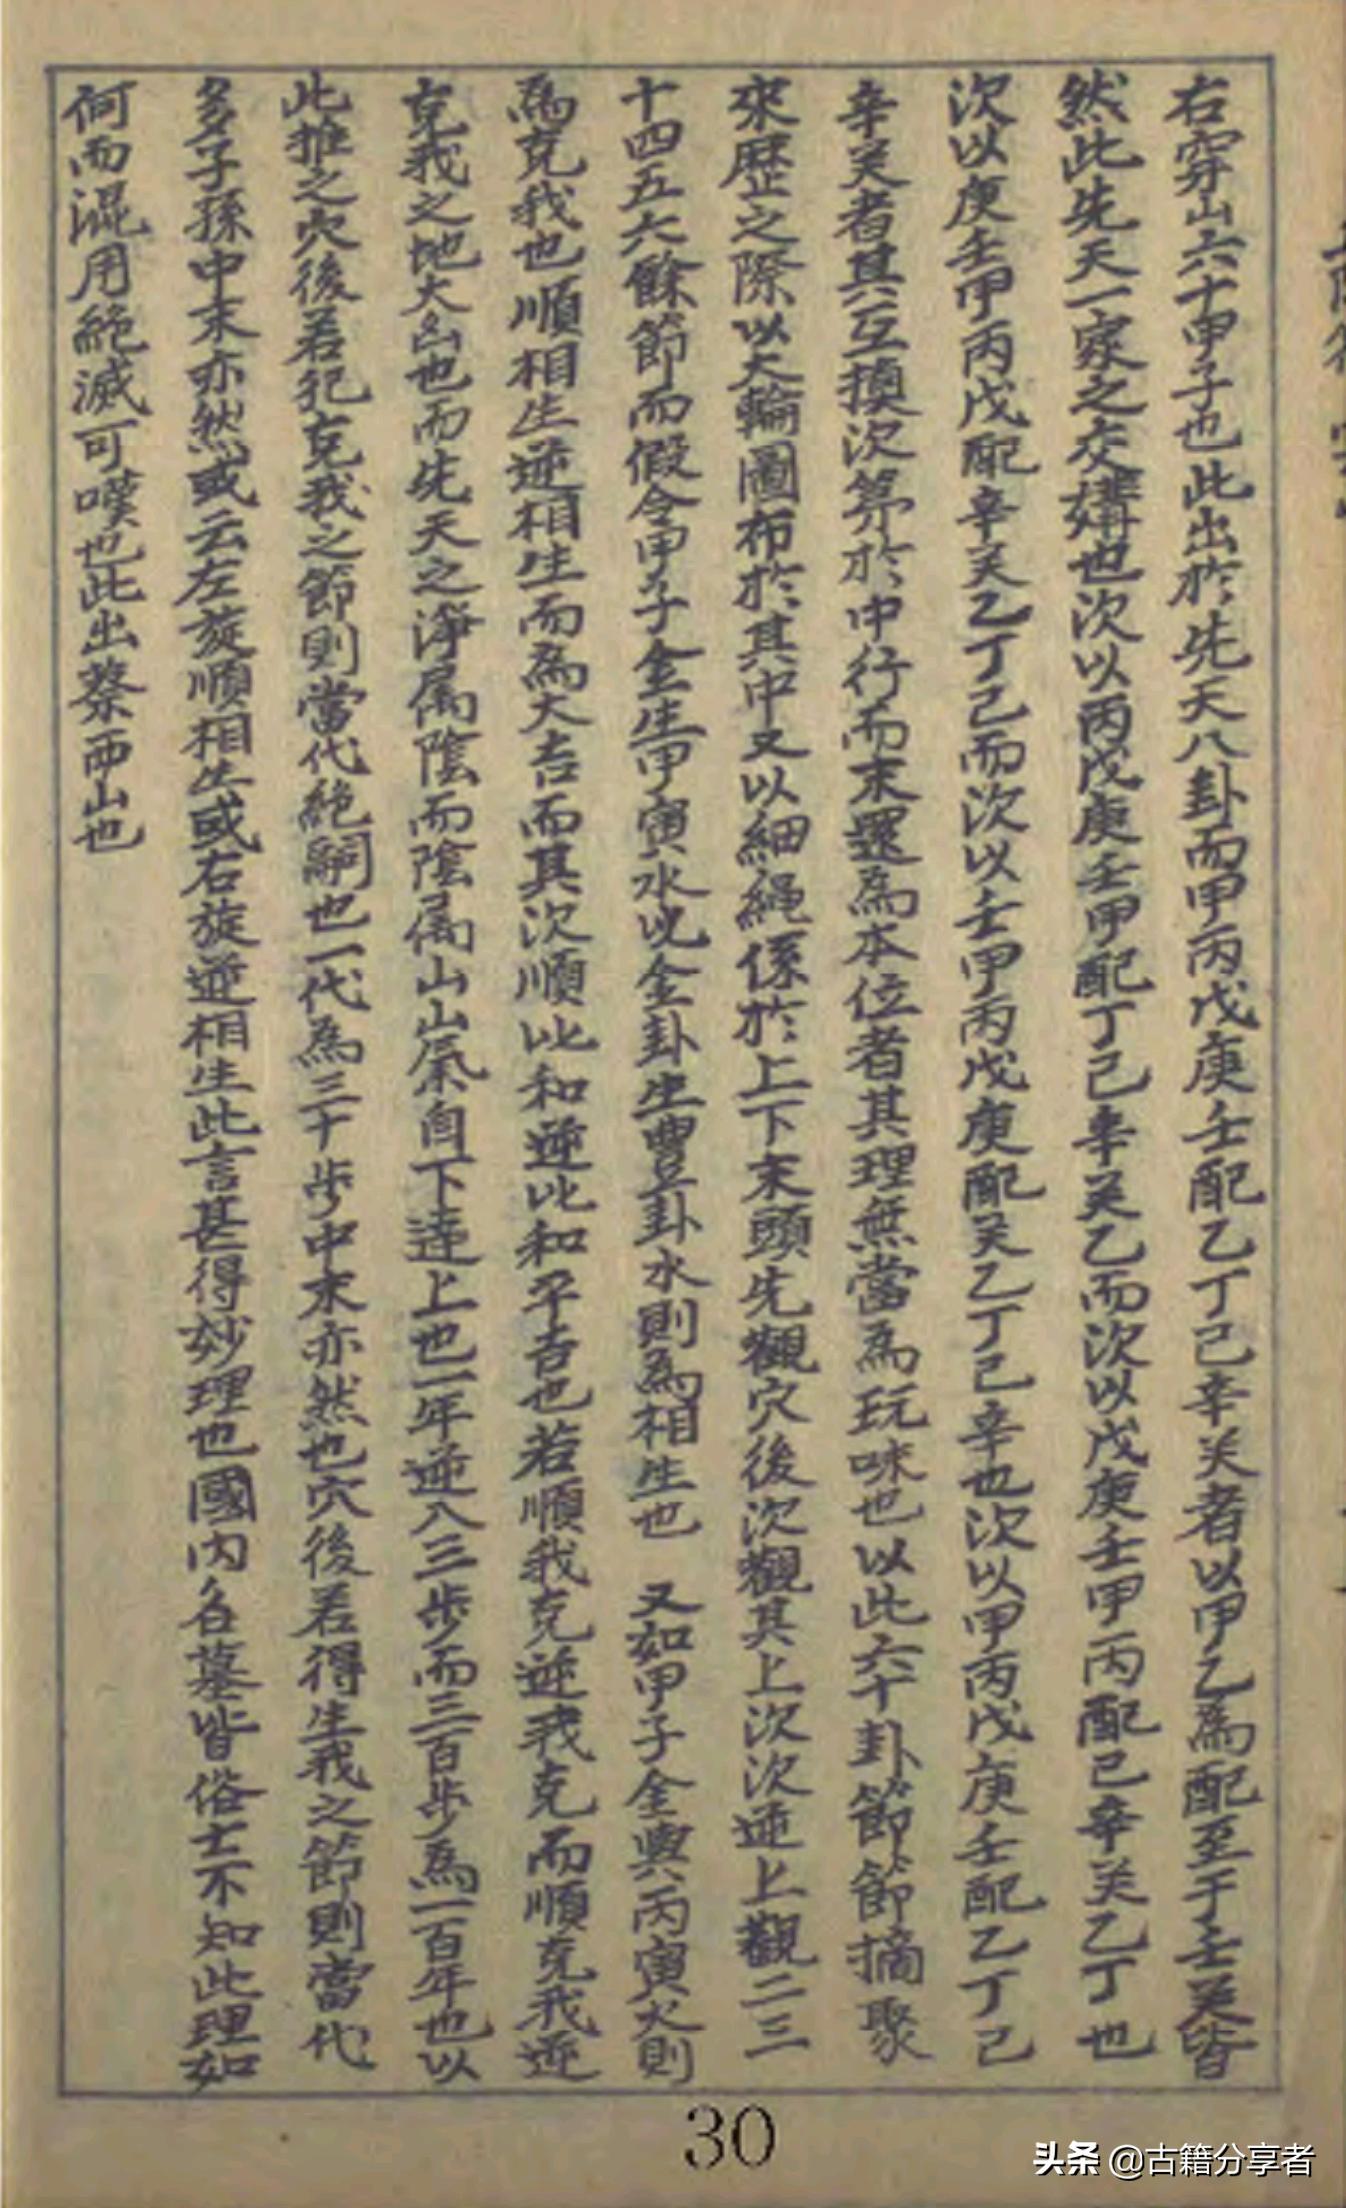 右穿山六十甲子也此出於先天八卦而甲丙戊庚壬配乙丁己辛癸者以甲乙為配至于壬癸皆
然此先天一家之交媾也次以丙戊庚壬甲配丁己辛癸乙而次以戊庚壬甲丙配己辛癸乙丁也
次以庚壬甲丙戊配辛癸乙丁己而次以壬甲丙戊庚配癸乙丁己辛也次以甲丙戊庚壬配乙丁己
辛癸者其六互換次第於中行而末還為本位者其理無當為玩味也以此六十卦節節摘聚
來歷之際以大輪圖布於其中又以細繩係於上下末頭先觀穴後次觀其上次次逆上觀二三
十四五六餘節而假令甲子金生甲寅水兌金卦生豊卦水則為相生也 又如甲子金與丙寅火則
為克我也順相生逆相生而為大吉而其次順比和逆比和平吉也若順我克逆我克而順克我逆
克我之地大凶也而先天之淨屬陰而陰屬山山氣自下達上也一年逆八三步而三百步為一百年也以
此推之穴後若犯克我之節則當代絕嗣也一代為三十步中末亦然也穴後若得生我之節則當代
多子孫中末亦然或云左旋順相生或右旋逆相生此言甚得妙理也國內名墓皆俗士不知此理如
何而混用絕滅可嘆也此出蔡西山也
30
头条 @古籍分享者